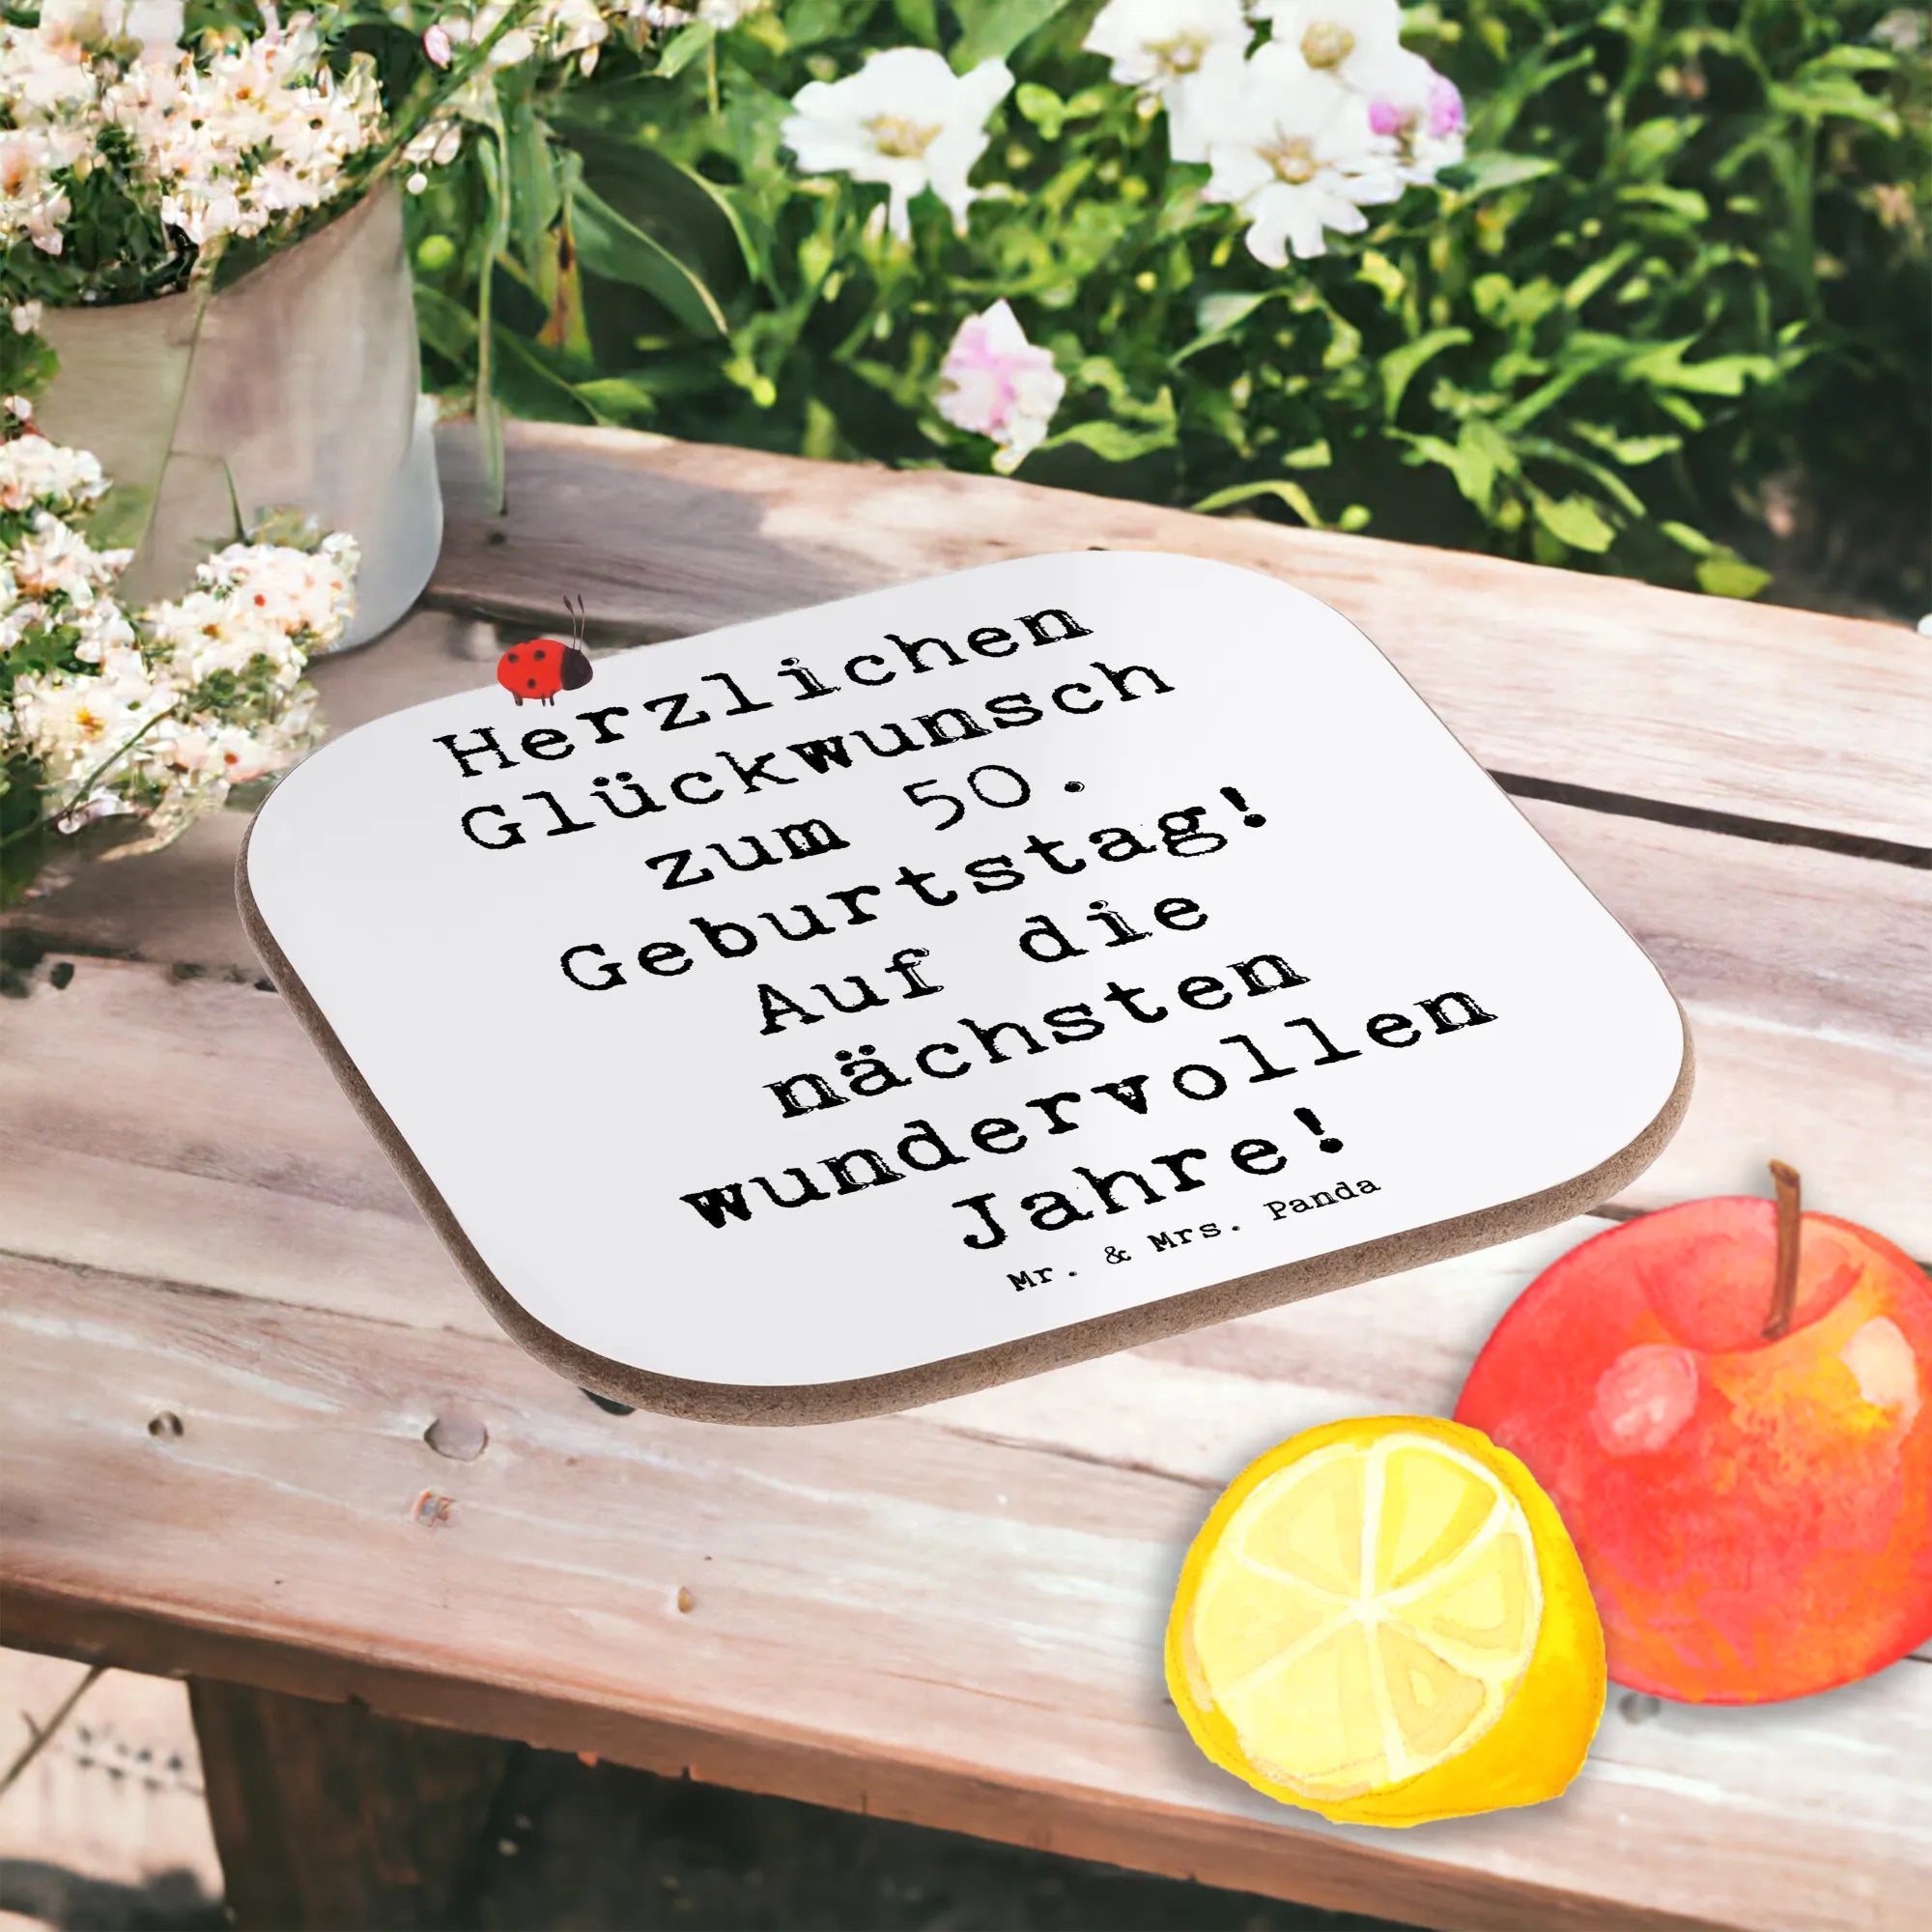 Herzlichen
Glückwunsch
zum 50.
Geburtstag!
Auf die
nächsten
wundervollen
Jahre!
Mr. & Mrs. Panda